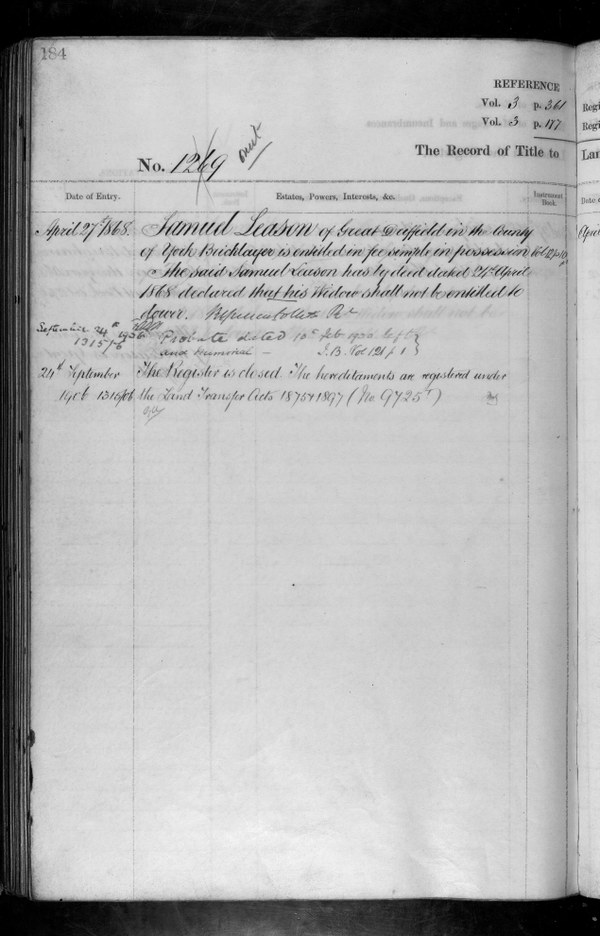 184
REFERENCE
Vol. 3 p. 361
Vol. 3 p. 177
No. 1269
The Record of Title to
Date of Entry.
Estates, Powers, Interests, &c.
Instrument Book.
April 27th 1868.
Samuel Leason of Great Driffield in the County
of York Bricklayer is entitled in fee simple in possession
The said Samuel Leason has by deed dated 21st April
1868 declared that his Widow shall not be entitled to
dower.
September 24th 1906
1315/6
Probate dated Feb left
and
I.B. Vol 121 p 1
24th September
1906 1315/06
The Register is closed. The hereditaments are registered under
the Land Transfer Acts 1875 & 1897 (No 9725)
Regi
Regi
Lan
Date o